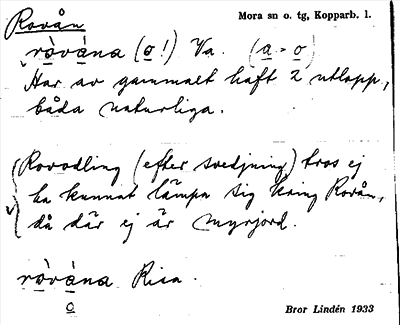 Rovån
Mora sn o. tg, Kopparb. l.
ròvàna (o!) Va. (a = o)
Har av gammalt haft 2 utlopp,
båda naturliga.
(Rovodling (efter svedjning) tros ej
ha kunnat lämpa sig kring Rovån,
då där ej är myrjord.
ròvàna Risa.
o
Bror Lindén 1933